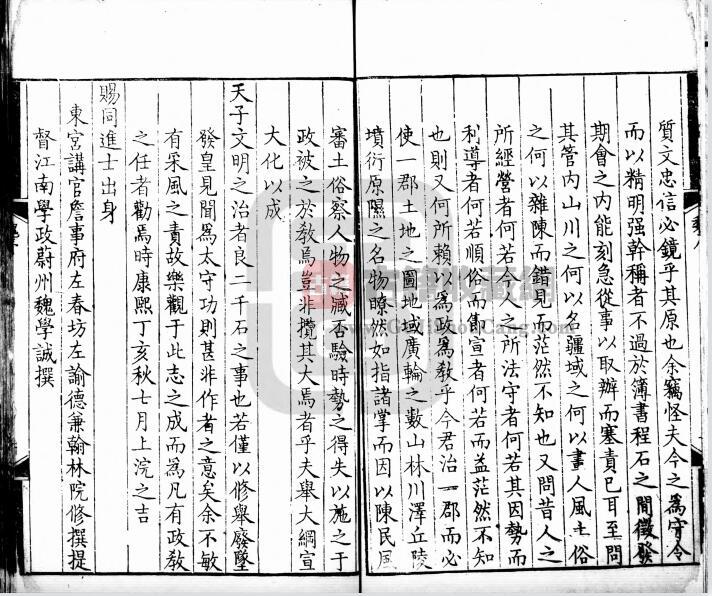 質文忠信必鏡乎其原也余竊怪夫今之爲守令
而以精明强幹稱者不過於簿書程石之間徵發
期會之内能刻急從事以取辦而塞責已耳至問
其管内山川之何以名疆域之何以畫人風土俗
之何以雜陳而錯見而茫然不知也又問昔人之
所經營者何若今人之所法守者何若其因勢而
利導者何若順俗而節宣者何若而益茫然不知
也則又何所賴以爲政爲教乎今君治一郡而必
使一郡土地之圖地域廣輪之數山林川澤丘陵
墳衍原隰之名物瞭然如指諸掌而因以陳民風
審土俗察人物之臧否驗時勢之得失以施之于
政被之於教焉豈非攬其大焉者乎夫舉大綱宣
大化以成
天子文明之治者良二千石之事也若僅以修舉廢墜
發皇見聞爲太守功則甚非作者之意矣余不敏
有采風之責故樂觀于此志之成而爲凡有政教
之任者勸焉時康熙丁亥秋七月上浣之吉
賜同進士出身
東宮講官詹事府左春坊左諭德兼翰林院修撰提
督江南學政蔚州魏學誠撰